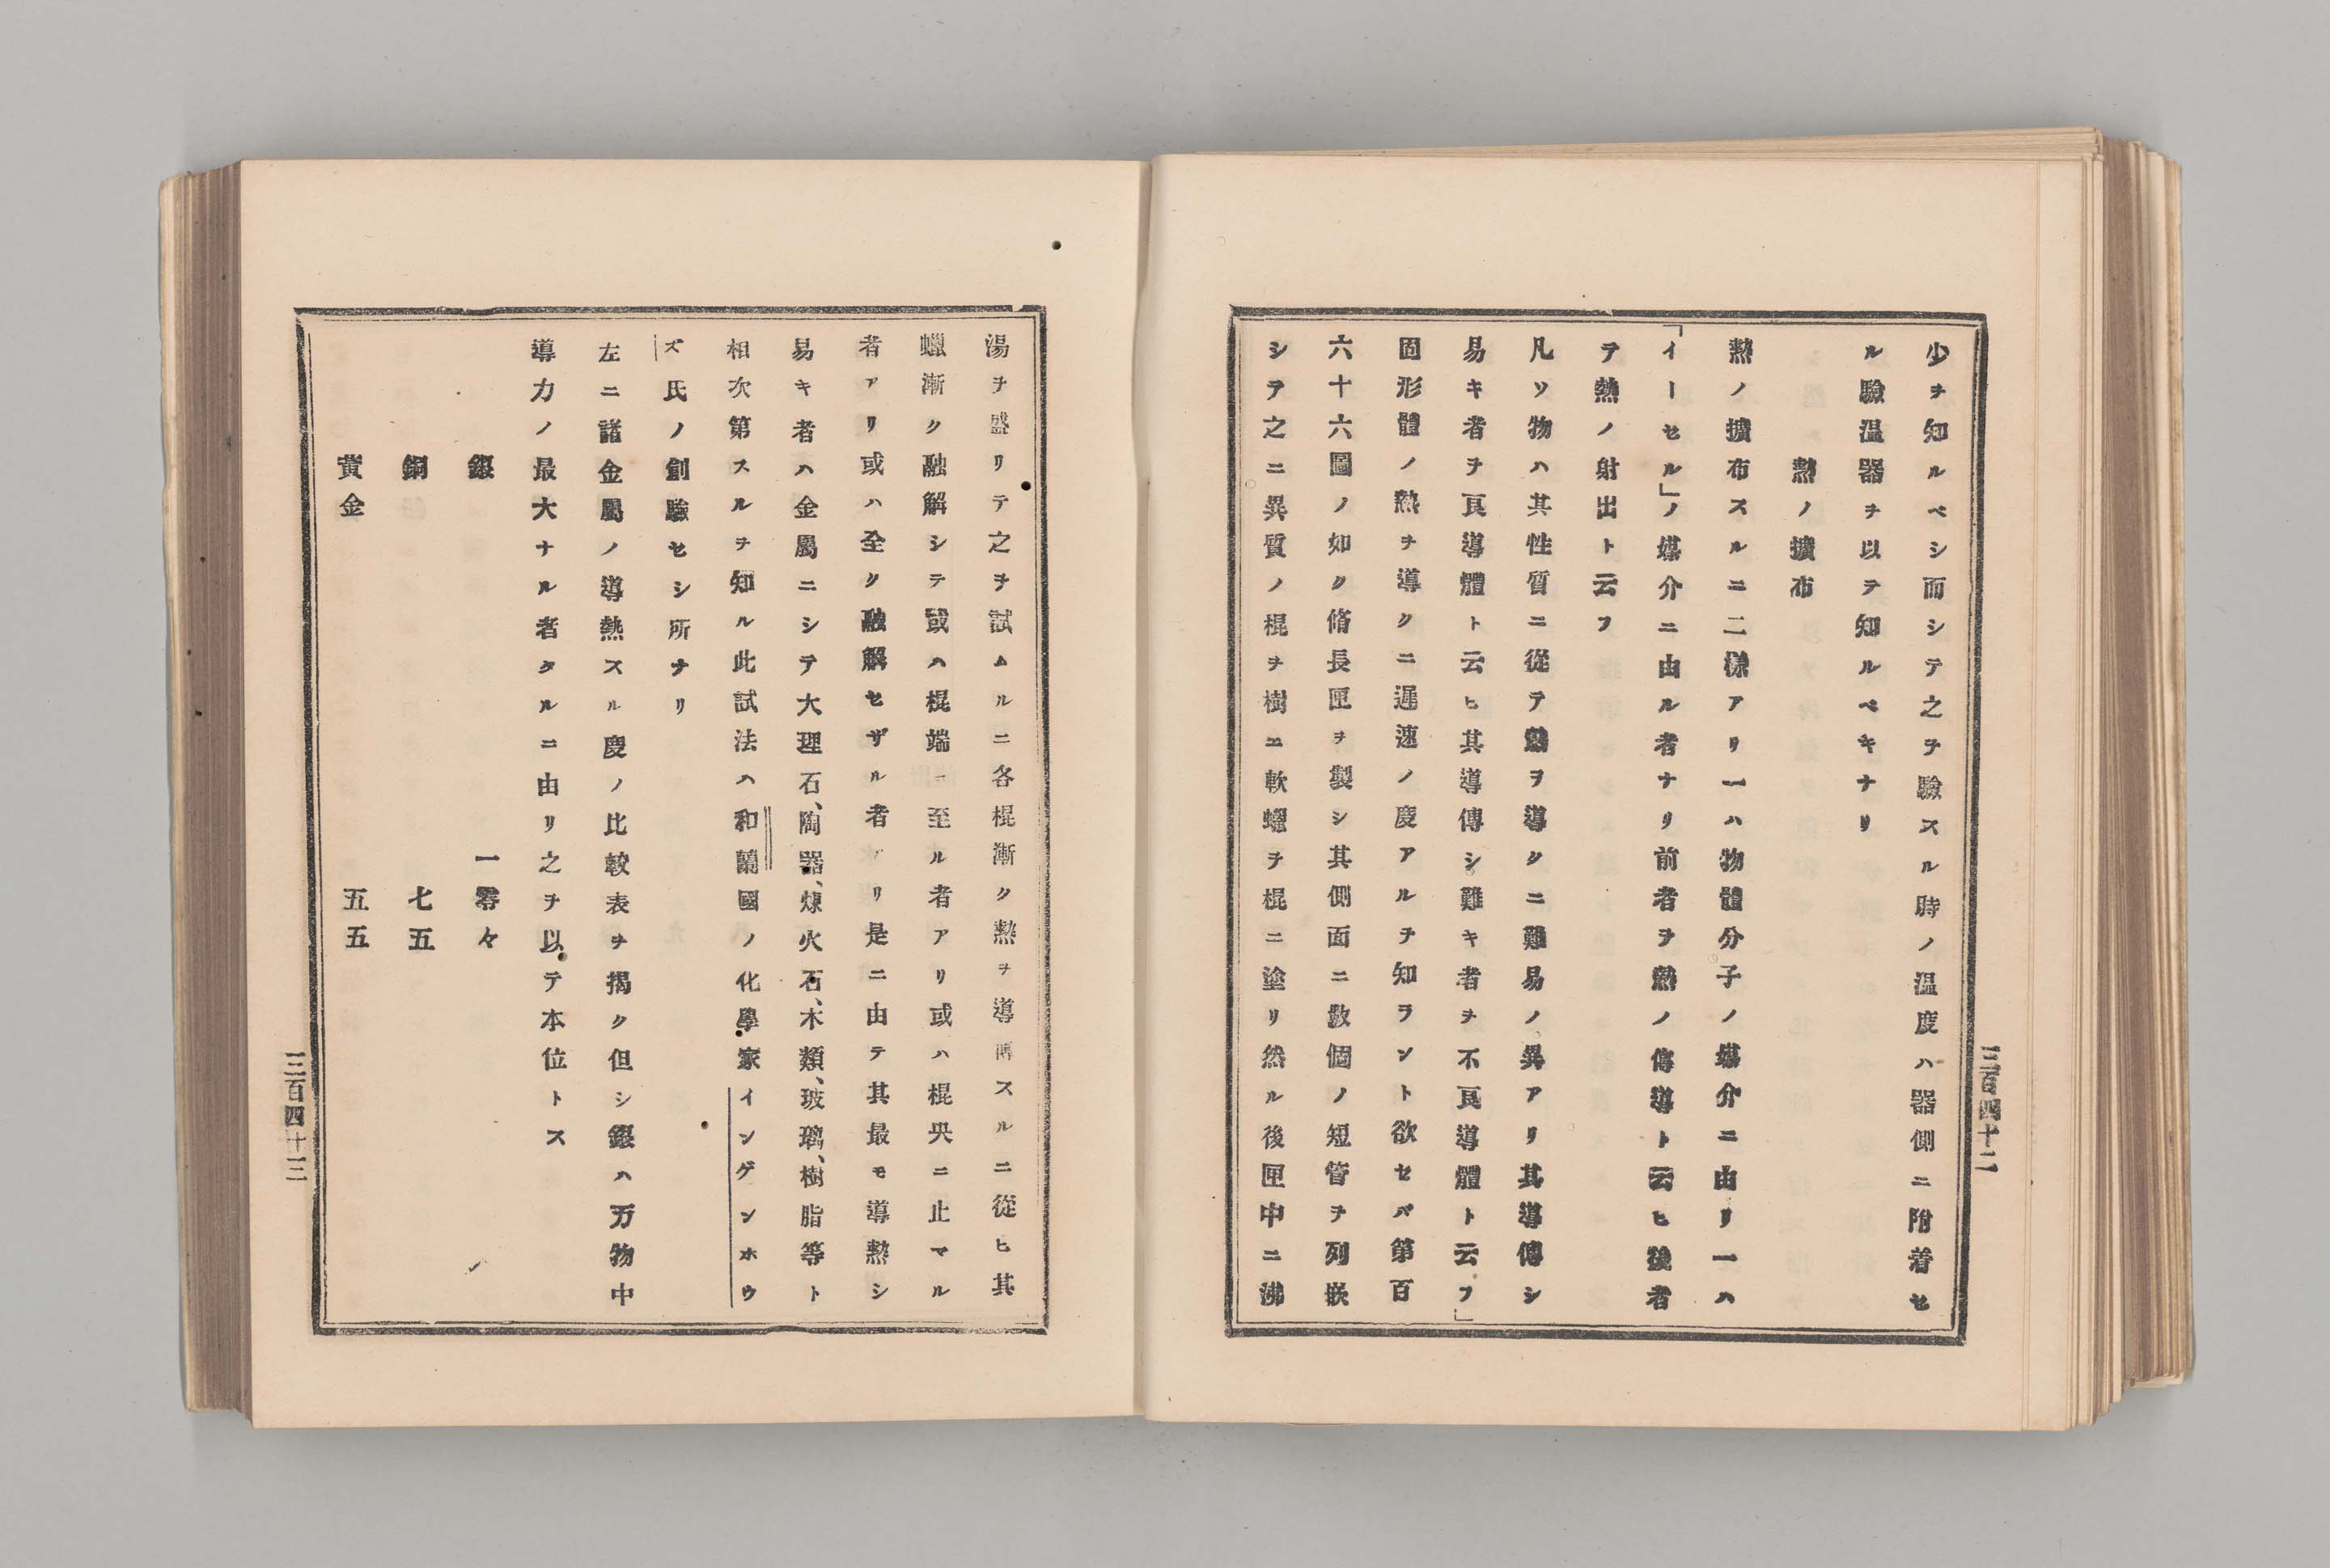 少ヲ知ルベシ而シテ之ヲ驗スル時ノ温度ハ器側ニ附着セ
ル驗温器ヲ以テ知ルベキナリ
熱ノ擴布
熱ノ擴布スルニ二樣アリ一ハ物體分子ノ媒介ニ由リ一ハ
「イーセル」ノ媒介ニ由ル者ナリ前者ヲ熱ノ傳導ト云ヒ後者
テ熱ノ射出ト云フ
凡ソ物ハ其性質ニ從テ熱ヲ導クニ難易ノ異アリ其導傳シ
易キ者ヲ良導體ト云ヒ其導傳シ難キ者ヲ不良導體ト云フ」
固形體ノ熱ヲ導クニ遲速ノ度アルヲ知ラント欲セバ第百
六十六圖ノ如ク脩長匣ヲ製シ其側面ニ數個ノ短管ヲ列嵌
シテ之ニ異質ノ棍ヲ樹ヱ軟蠟ヲ棍ニ塗リ然ル後匣中ニ沸
三百四十二
湯ヲ盛リテ之ヲ試ムルニ各棍漸ク熱ヲ導傳スルニ從ヒ其
蠟漸ク融解シテ或ハ棍端ニ至ル者アリ或ハ棍央ニ止マル
者アリ或ハ全ク融解セザル者アリ是ニ由テ其最モ導熱シ
易キ者ハ金屬ニシテ大理石、陶器、煉火石、木類、玻璃、樹脂等ト
相次第スルヲ知ル此試法ハ和蘭國ノ化學家インゲンホウ
ズ氏ノ創驗セシ所ナリ
左ニ諸金屬ノ導熱スル度ノ比較表ヲ揭ク但シ銀ハ万物中
導力ノ最大ナル者タルニ由リ之ヲ以テ本位トス
銀 一零々
銅 七五
黄金 五五
三百四十三